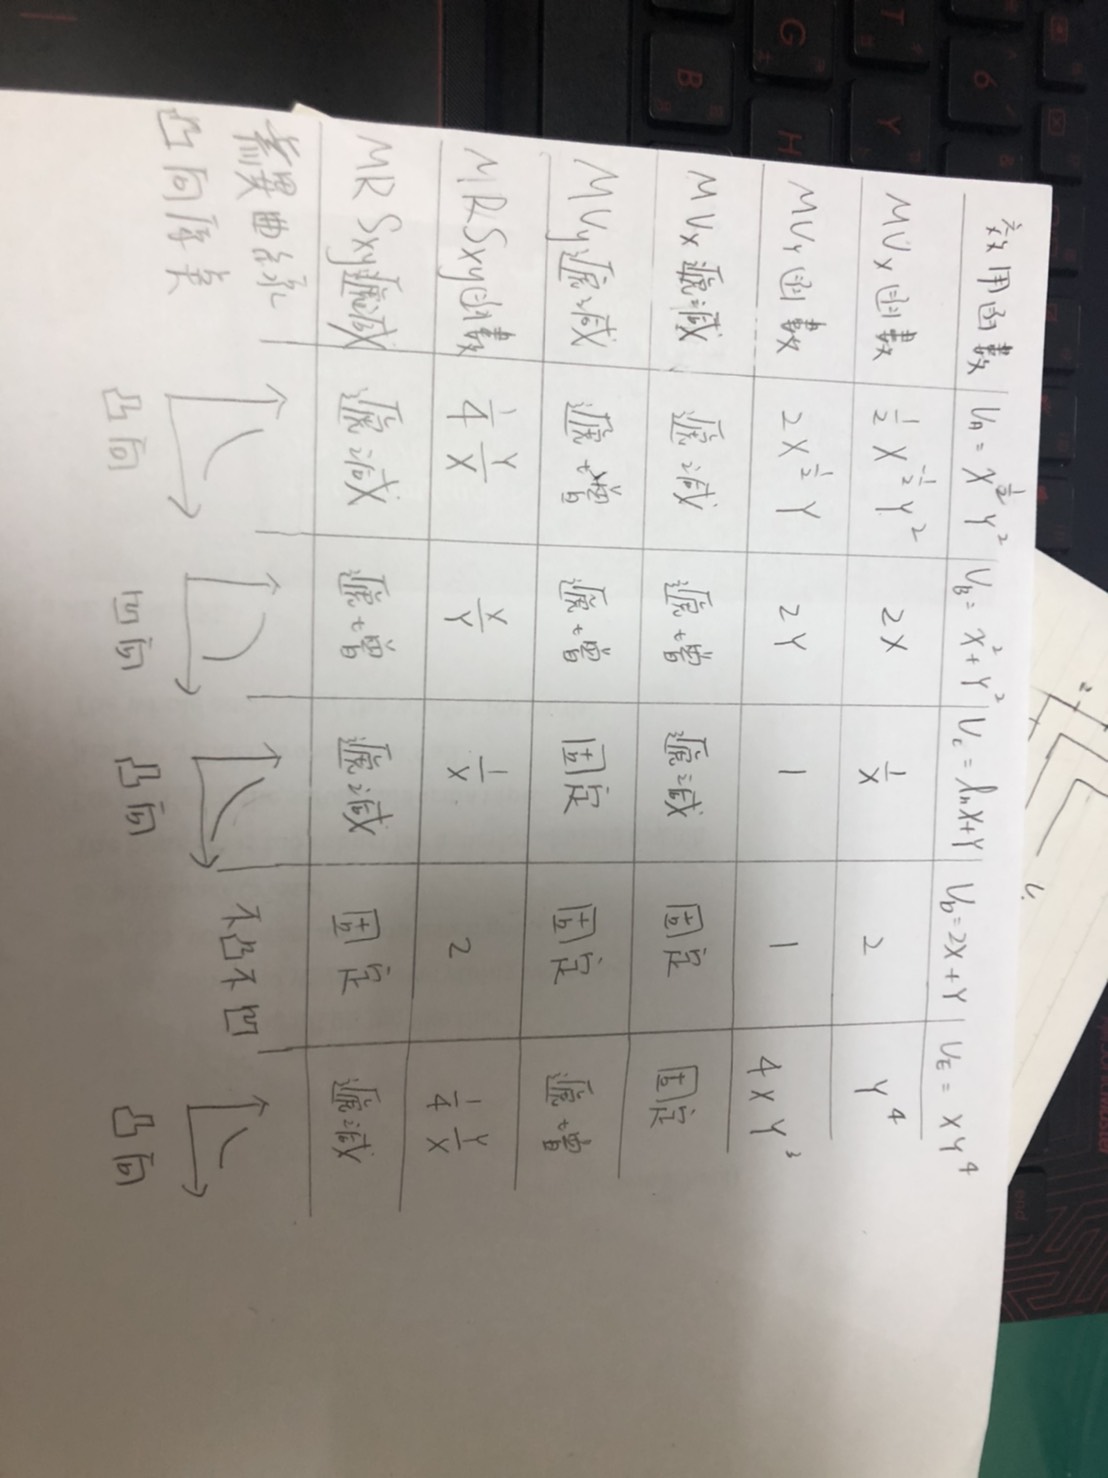 效用函數 U_A = X^{1/2} Y^2 U_B = X^2 + Y^2 U_C = lnX+Y U_D = 2X+Y U_E = XY^4
MU_X 函數 1/2 X^{-1/2} Y^2 2X 1/X 2 Y^4
MU_Y 函數 2X^{1/2} Y 2Y 1 1 4XY^3
MU_X 遞減 遞減 遞增 遞減 固定 固定
MU_y 遞減 遞增 遞增 固定 固定 遞增
MRS_xy 函數 1/4 Y/X X/Y 1/X 2 1/4 Y/X
MRS_xy 遞減 遞減 遞增 遞減 固定 遞減
無異曲線 不凸不凹
凸向原點 凸向 凹向 凸向 凸向
G
T
6
B
H
Y
end